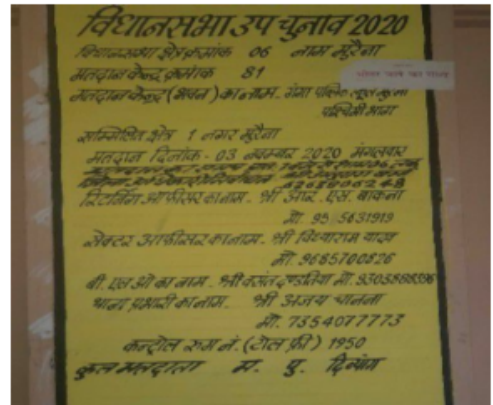 विधानसभा उप चुनाव 2020
विधानसभा क्षेत्र क्रमांक 06 नाम मुरैना
मतदान केन्द्र क्रमांक 81
मतदान केन्द्र (भवन) का नाम - गंगा पब्लिक स्कूल मुरैना
पश्चिमी भाग
सम्मिलित क्षेत्र 1 नगर मुरैना
मतदान दिनांक - 03 नवम्बर 2020 मंगलवार
रिटर्निंग ऑफीसर का नाम - श्री आर. एस. बाकना
मो.
सेक्टर आफीसर का नाम - श्री विद्याराम यादव
मो. 9685700826
बी. एल ओ का नाम - श्री वसंत दण्डोतिया मो.
थाना प्रभारी का नाम - श्री अजय चानना
मो. 7354077773
कन्ट्रोल रूम नं. (टोल फ्री) 1950
कुल मतदाता म. पु. दिव्यांग